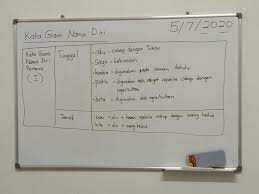 Kata Ganti Nama Diri
5/7/2020
Kata Ganti
Nama Diri
Pertama
(I)
Tunggal
- aku - cakap dengan Tuhan
- Saya -
- hamba - digunakan pada zaman dahulu
- patik - digunakan oleh rakyat apabila cakap dengan
raja/sultan
- beta - digunakan oleh raja/sultan
Jamak
kami - diri + kawan apabila cakap dengan orang kedua
kita - diri + orang kedua